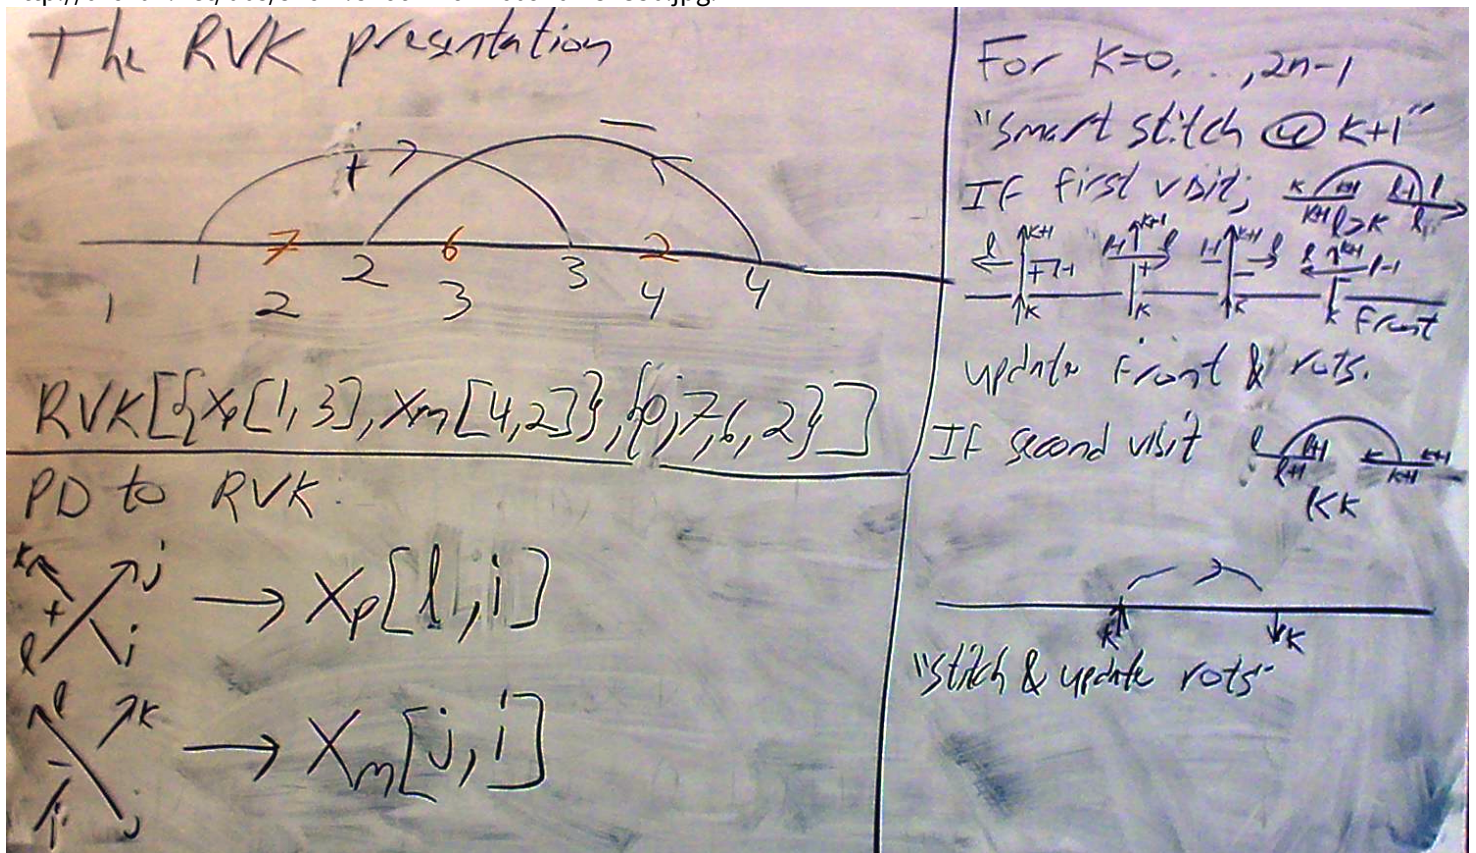 The RVK presentation
+
−
7 6 2
1 2 3 4
1 2 3 4
RVK[{Xp[1,3],Xm[4,2]},{0,7,6,2}]
PD to RVK:
k j
+
l i
→ Xp[l,i]
l k
−
i j
→ Xm[j,i]
For k=0,...,2n-1
"smart stitch @ k+1"
If first visit;
k k+1 l-1 l
k+1 l>k l
l k+1 l-1 k+1 l l-1 k+1 l l k+1 l-1
+ + − −
k k k k Front
update front & rots.
If second visit
l l+1 k k+1
l+1 k+1
l<k
k k
"stitch & update rots"